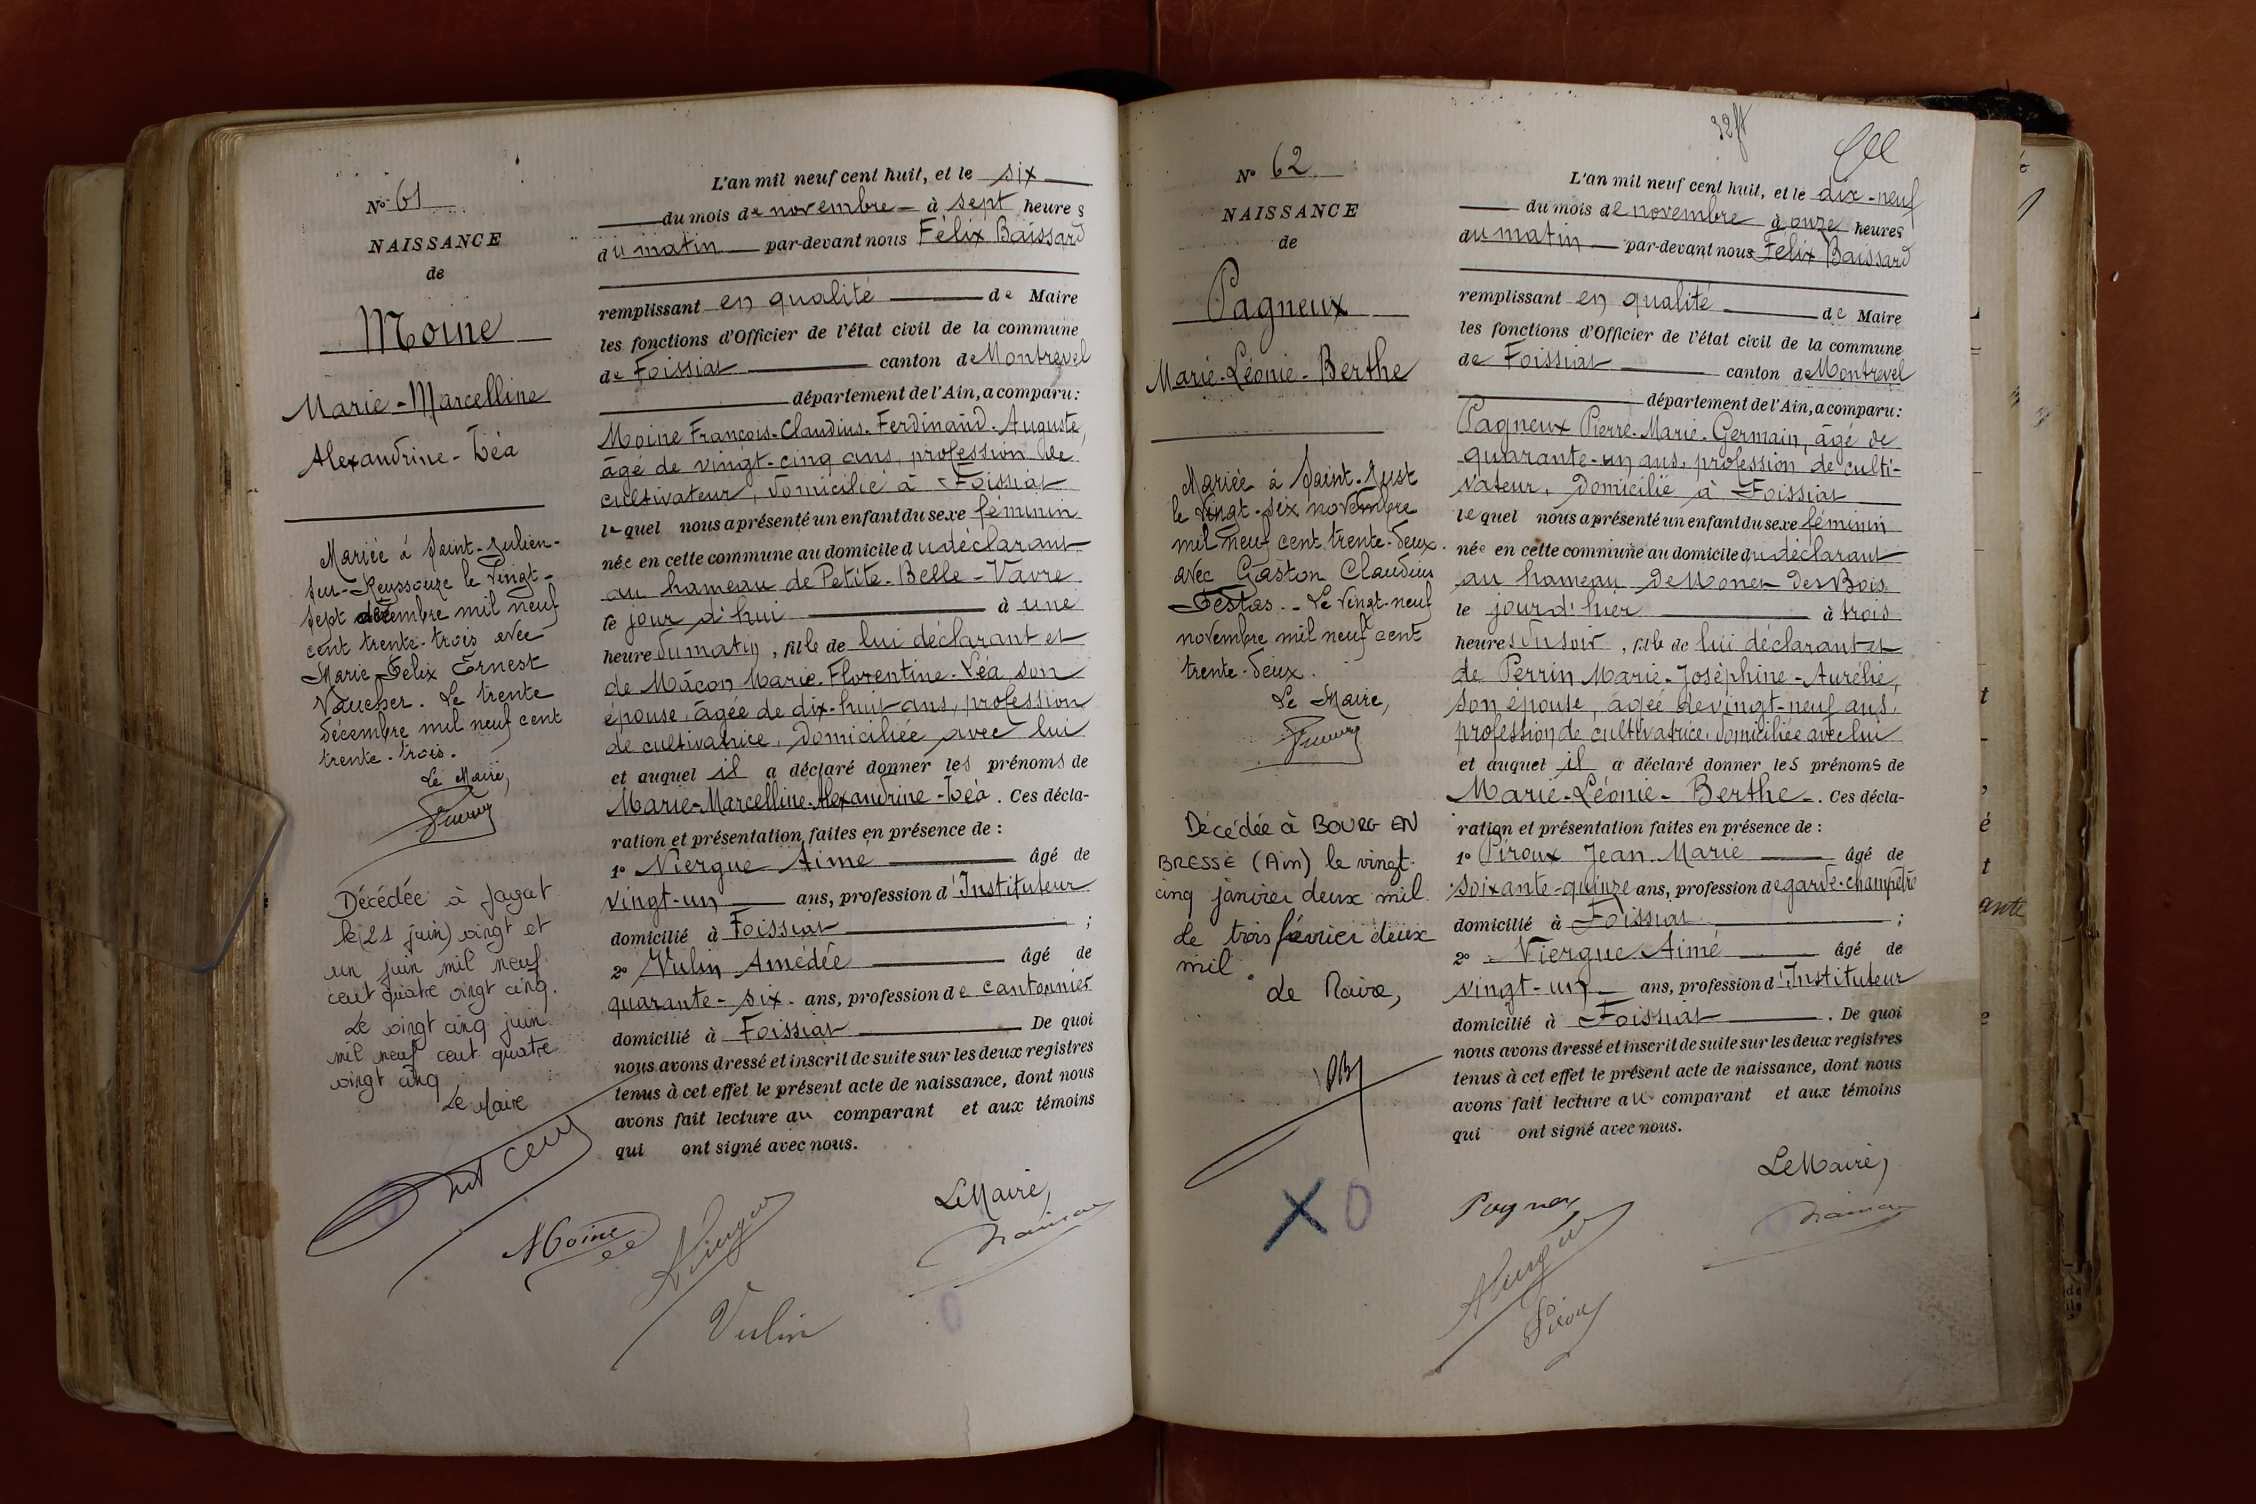 Nº 61
NAISSANCE
de
Moine
Marie-Marcelline
Alexandrine-Léa
Mariée à Saint-Julien-
sur-Reyssouze le vingt-
sept décembre mil neuf
cent trente-trois avec
Marie Félix Ernest
Vaucher. Le trente
décembre mil neuf cent
trente-trois.
Le Maire,
Décédée à Jayat
le (21 juin) vingt et
un juin mil neuf
cent quatre vingt cinq.
Le vingt cinq juin
mil neuf cent quatre
vingt cinq
Le Maire
L'an mil neuf cent huit, et le six
du mois de novembre à sept heures
du matin par-devant nous Félix Baissard
remplissant en qualité de Maire
les fonctions d'Officier de l'état civil de la commune
de Foissiat canton de Montrevel
département de l'Ain, a comparu:
Moine François-Claudius-Ferdinand-Auguste,
âgé de vingt-cinq ans, profession de
cultivateur, domicilié à Foissiat
lequel nous a présenté un enfant du sexe féminin
née en cette commune au domicile du déclarant
au hameau de Petite-Belle-Vavre
le jour d'hui à une
heure du matin, fille de lui déclarant et
de Mâcon Marie-Florentine-Léa son
épouse, âgée de dix-huit ans, profession
de cultivatrice, domiciliée avec lui
et auquel il a déclaré donner les prénoms de
Marie-Marcelline-Alexandrine-Léa. Ces décla-
ration et présentation faites en présence de :
1º Viergue Aimé âgé de
vingt-un ans, profession d'Instituteur
domicilié à Foissiat ;
2º Vulin Amédée âgé de
quarante-six ans, profession de cantonnier
domicilié à Foissiat De quoi
nous avons dressé et inscrit de suite sur les deux registres
tenus à cet effet le présent acte de naissance, dont nous
avons fait lecture au comparant et aux témoins
qui ont signé avec nous.
Le Maire,
Moine
Viergue
Vulin
Nº 62
NAISSANCE
de
Pagneux
Marie-Léonie-Berthe
Mariée à Saint-Just
le vingt-six novembre
mil neuf cent trente-deux
avec Gaston Claudius
Festas. - Le vingt-neuf
novembre mil neuf cent
trente-deux.
Le Maire,
Décédée à BOURG EN
BRESSE (Ain) le vingt
cinq janvier deux mil.
Le trois février deux
mil.
Le Maire,
X 0
L'an mil neuf cent huit, et le dix-neuf
du mois de novembre à onze heures
du matin par-devant nous Félix Baissard
remplissant en qualité de Maire
les fonctions d'Officier de l'état civil de la commune
de Foissiat canton de Montrevel
département de l'Ain, a comparu:
Pagneux Pierre-Marie-Germain, âgé de
quarante-un ans, profession de culti-
vateur, domicilié à Foissiat
lequel nous a présenté un enfant du sexe féminin
née en cette commune au domicile du déclarant
au hameau de Monet des Bois
le jour d'hier à trois
heures du soir, fille de lui déclarant et
de Perrin Marie-Joséphine-Aurélie,
son épouse, âgée de vingt-neuf ans,
profession de cultivatrice, domiciliée avec lui
et auquel il a déclaré donner les prénoms de
Marie-Léonie-Berthe. Ces décla-
ration et présentation faites en présence de :
1º Piroux Jean-Marie âgé de
soixante-quinze ans, profession de garde-champêtre
domicilié à Foissiat ;
2º Viergue Aimé âgé de
vingt-un ans, profession d'Instituteur
domicilié à Foissiat. De quoi
nous avons dressé et inscrit de suite sur les deux registres
tenus à cet effet le présent acte de naissance, dont nous
avons fait lecture au comparant et aux témoins
qui ont signé avec nous.
Le Maire,
Viergue